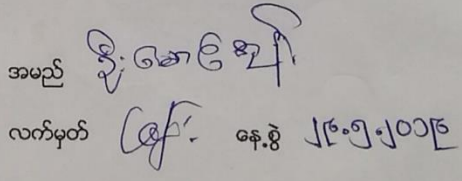 အမည် ဦးမောင်ကျော်
လက်မှတ် နေ့စွဲ ၂၉.၅.၂၀၁၉